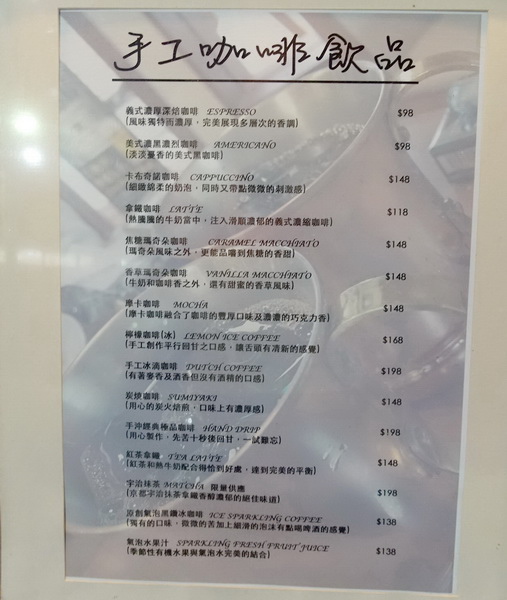 手工咖啡飲品
義式濃厚深焙咖啡 ESPRESSO $98
(風味獨特而濃厚，完美展現多層次的香調)
美式濃黑濃烈咖啡 AMERICANO $98
(淡淡憂香的美式黑咖啡)
卡布奇諾咖啡 CAPPUCCINO $148
(細緻綿柔的奶泡，同時又帶點微微的刺激感)
拿鐵咖啡 LATTE $118
(熱騰騰的牛奶當中，注入滑順濃郁的義式濃縮咖啡)
焦糖瑪奇朵咖啡 CARAMEL MACCHIATO $148
(瑪奇朵風味之外，更能品嚐到焦糖的香甜)
香草瑪奇朵咖啡 VANILLA MACCHIATO $148
(牛奶和咖啡香之外，還有甜蜜的香草風味)
摩卡咖啡 MOCHA $148
(摩卡咖啡融合了咖啡的豐厚口味及濃濃的巧克力香)
檸檬咖啡(冰) LEMON ICE COFFEE $168
(手工創作平行回甘之口感，讓舌頭有清新的感覺)
手工冰滴咖啡 DUTCH COFFEE $198
(有著麥香及酒香但沒有酒精的口感)
炭燒咖啡 SUMIYAKI $148
(用心的炭火焙煎，口味上有濃厚感)
手沖經典極品咖啡 HAND DRIP $198
(用心製作，先苦十秒後回甘，一試難忘)
紅茶拿鐵 TEA LATTE $148
(紅茶和熱牛奶配合得恰到好處、達到完美的平衡)
宇治抹茶 MATCHA 限量供應 $198
(京都宇治抹茶拿鐵香醇濃郁的絕佳味道)
原創氣泡黑鑽冰咖啡 ICE SPARKLING COFFEE $138
(獨有的口味，微微的苦加上細滑的泡沫有點喝啤酒的感覺)
氣泡水果汁 SPARKLING FRESH FRUIT JUICE $138
(季節性有機水果與氣泡水完美的結合)